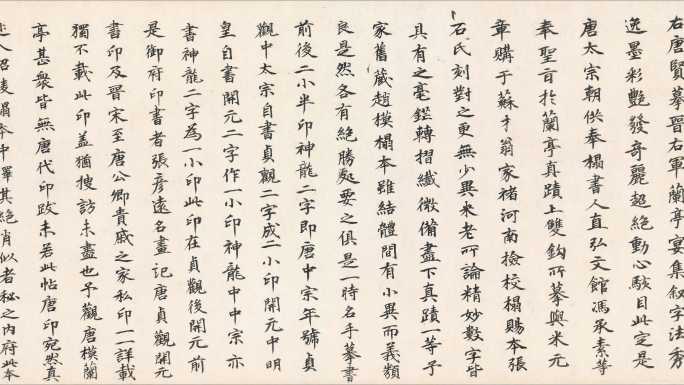 右唐賢摹晉右軍蘭亭宴集敘字法秀
逸墨彩艷發奇麗超絕動心駭目此定是
唐太宗朝供奉搨書人直弘文館馮承素等
奉聖旨於蘭亭真蹟上雙鉤所摹與米元
章購于蘇才翁家褚河南檢校搨賜本張
石氏刻對之更無少異米老所論精妙數字皆
具有之毫鋩轉摺纖微備盡下真蹟一等予
家舊藏趙模搨本雖結體間有小異而義類
良是然各有絕勝處要之俱是一時名手摹書
前後二小半印神龍二字即唐中宗年號貞
觀中太宗自書貞觀二字成二小印開元中明
皇自書開元二字作一小印神龍中中宗亦
書神龍二字為一小印此印在貞觀後開元前
是御府印書者張彥遠名畫記唐貞觀開元
書印及晉宋至唐公卿貴戚之家私印一一詳載
獨不載此印盖猶搜訪未盡也予觀唐模蘭
亭甚衆皆無唐代印跋未若此帖唐印宛然真
昭陵搨本中擇其絕肖似者秘之內府此本